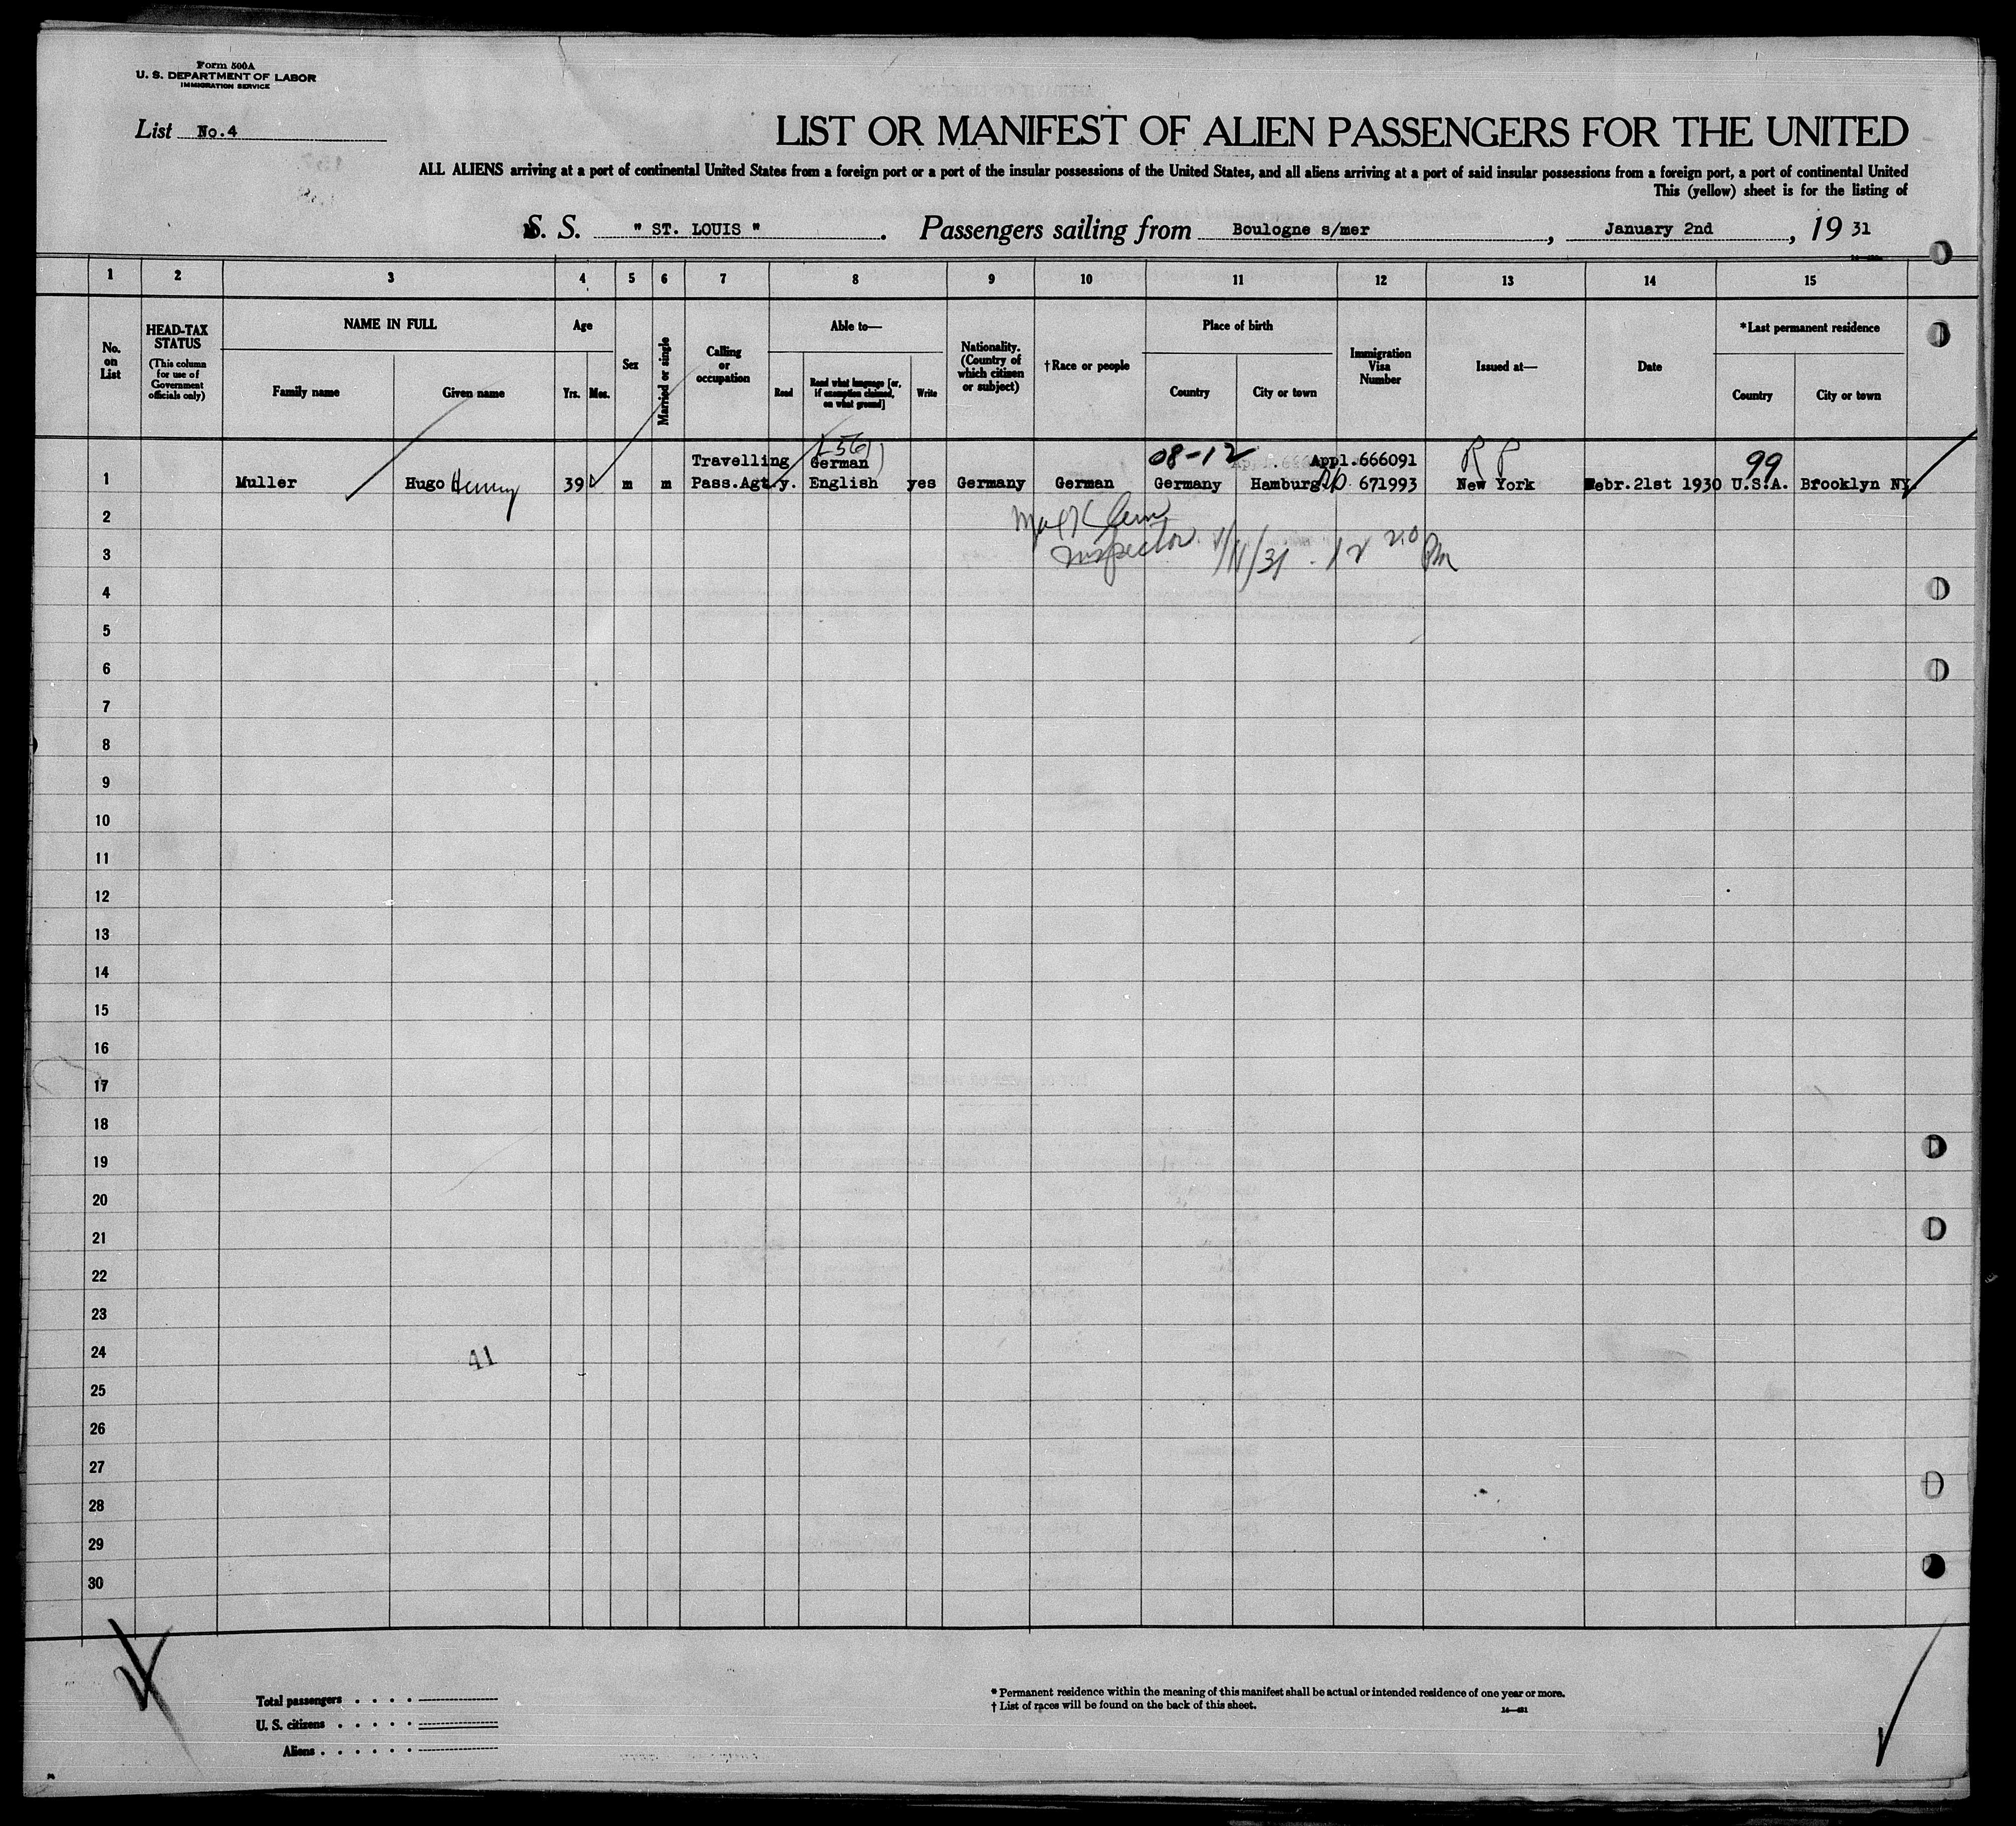 Form 500A
U. S. DEPARTMENT OF LABOR
IMMIGRATION SERVICE
List No.4
LIST OR MANIFEST OF ALIEN PASSENGERS FOR THE UNITED
ALL ALIENS arriving at a port of continental United States from a foreign port or a port of the insular possessions of the United States, and all aliens arriving at a port of said insular possessions from a foreign port, a port of continental United
This (yellow) sheet is for the listing of
S. S. " ST. LOUIS ". Passengers sailing from Boulogne s/mer, January 2nd, 19 31
1 2 3 4 5 6 7 8 9 10 11 12 13 14 15
No. on List
HEAD-TAX STATUS
(This column for use of Government officials only)
NAME IN FULL
Family name Given name
Age
Yrs. Mos.
Sex
Married or single
Calling or occupation
Able to—
Read Read what language [or, if exemption claimed, on what ground] Write
Nationality. (Country of which citizen or subject)
†Race or people
Place of birth
Country City or town
Immigration Visa Number
Issued at—
Date
*Last permanent residence
Country City or town
Travelling German 08-12 Appl.666091 R P 99
1 Muller Hugo Henry 39 m m Pass.Agt. y. English yes Germany German Germany Hamburg. 671993 New York Febr.21st 1930 U.S.A. Brooklyn NY.
2
Inspector 1/11/31 12 20 PM
3
4
5
6
7
8
9
10
11
12
13
14
15
16
17
18
19
20
21
22
23
24
41
25
26
27
28
29
30
Total passengers
U. S. citizens
Aliens
* Permanent residence within the meaning of this manifest shall be actual or intended residence of one year or more.
† List of races will be found on the back of this sheet.